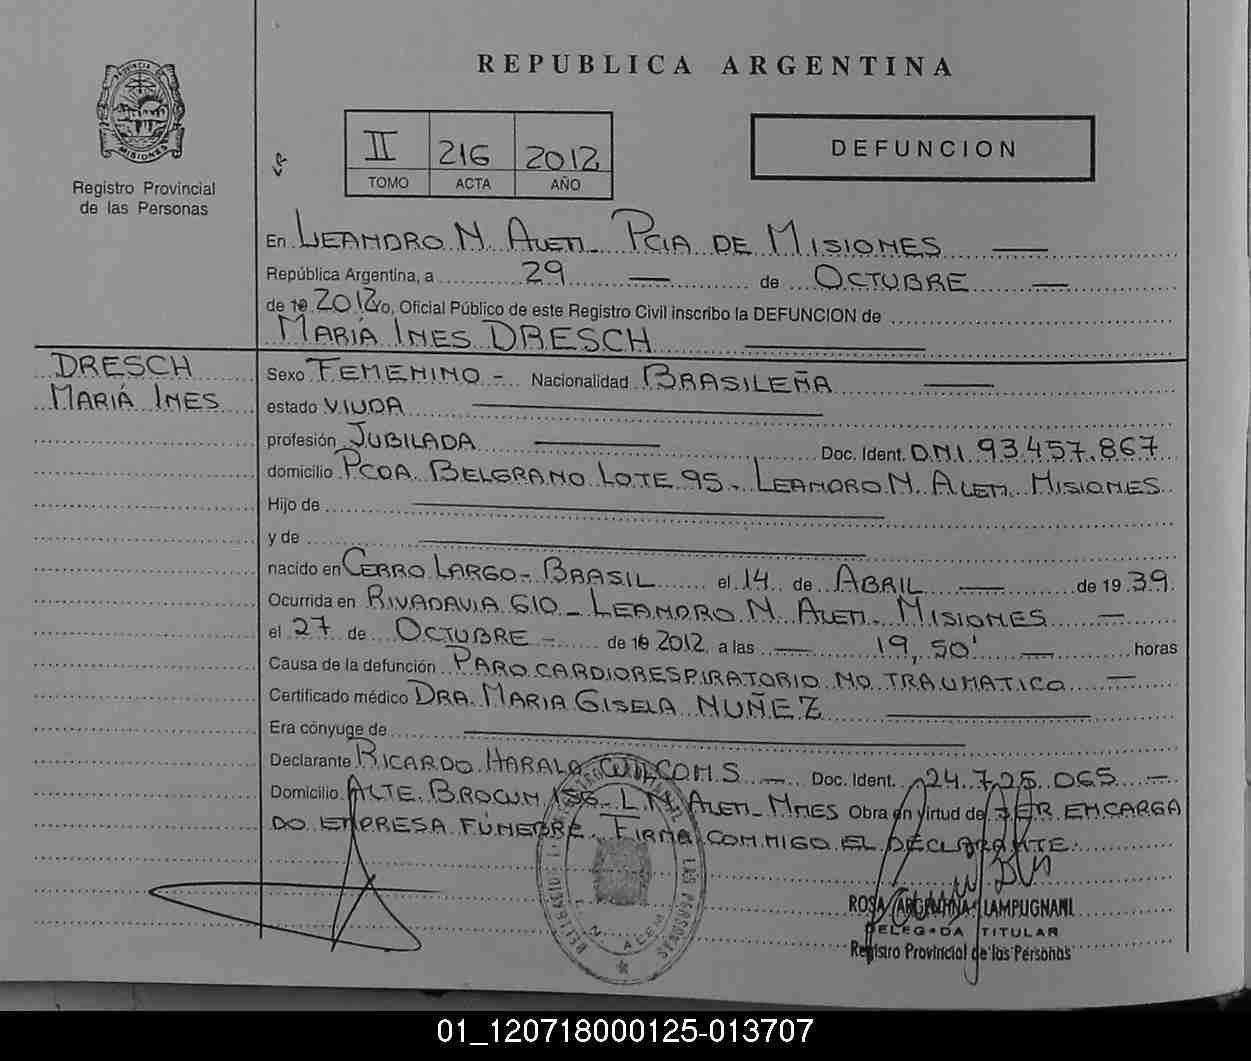 REPUBLICA ARGENTINA
PROVINCIA DE
MISIONES
Registro Provincial
de las Personas
II 216 2012
TOMO ACTA AÑO
DEFUNCION
En LEANDRO N. ALEM - PCIA DE MISIONES
República Argentina, a 29 de OCTUBRE
de 19 2012 Yo, Oficial Público de este Registro Civil inscribo la DEFUNCION de
MARIÁ INES DRESCH
DRESCH
MARIÁ INES
Sexo FEMENINO - Nacionalidad BRASILEÑA
estado VIUDA
profesión JUBILADA Doc. Ident. D.N.I. 93.457.867
domicilio PCDA. BELGRANO LOTE 95 - LEANDRO N. ALEM. MISIONES
Hijo de
y de
nacido en CERRO LARGO - BRASIL el 14 de ABRIL de 19 39
Ocurrida en RIVADAVIA 610 - LEANDRO N. ALEM. MISIONES
el 27 de OCTUBRE - de 19 2012 a las 19,50' horas
Causa de la defunción PARO CARDIORESPIRATORIO NO TRAUMATICO
Certificado médico DRA. MARIA GISELA NUÑEZ
Era cónyuge de
Declarante RICARDO Doc. Ident. 24.725.065
Domicilio ALTE. BROWN L.N. ALEM - MNES Obra en virtud de SER ENCARGA
DO EMPRESA FÚNEBRE. FIRMA CONMIGO EL DECLARANTE.
LAS PERSONAS
L. N. ALEM
ROSA ARGENTINA LAMPUGNANI
DELEGADA TITULAR
Registro Provincial de las Personas
01_120718000125-013707